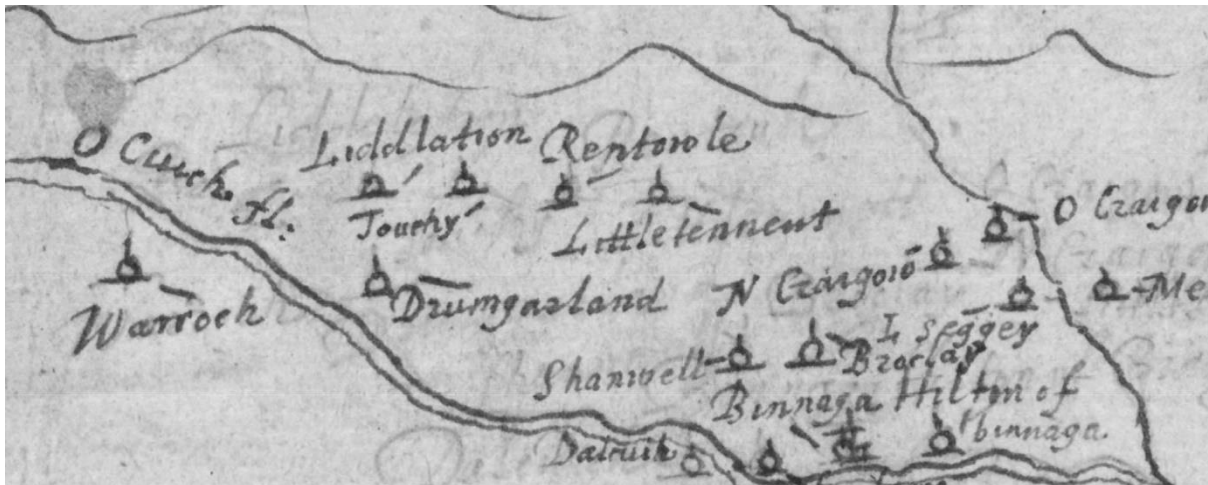 O Cuich fl.
Liddlation
Rentowle
Touchy
Littletennent
O Craigow
N Craigow
Warroch
Drumgarland
L Seggey
Me
Shanwell
Broclay
Binnaga
Hilton of
binnaga
Dalcuik